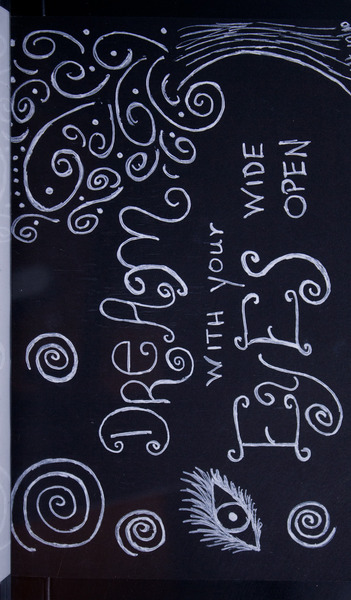 DREAM
WITH your
EYES WIDE
OPEN